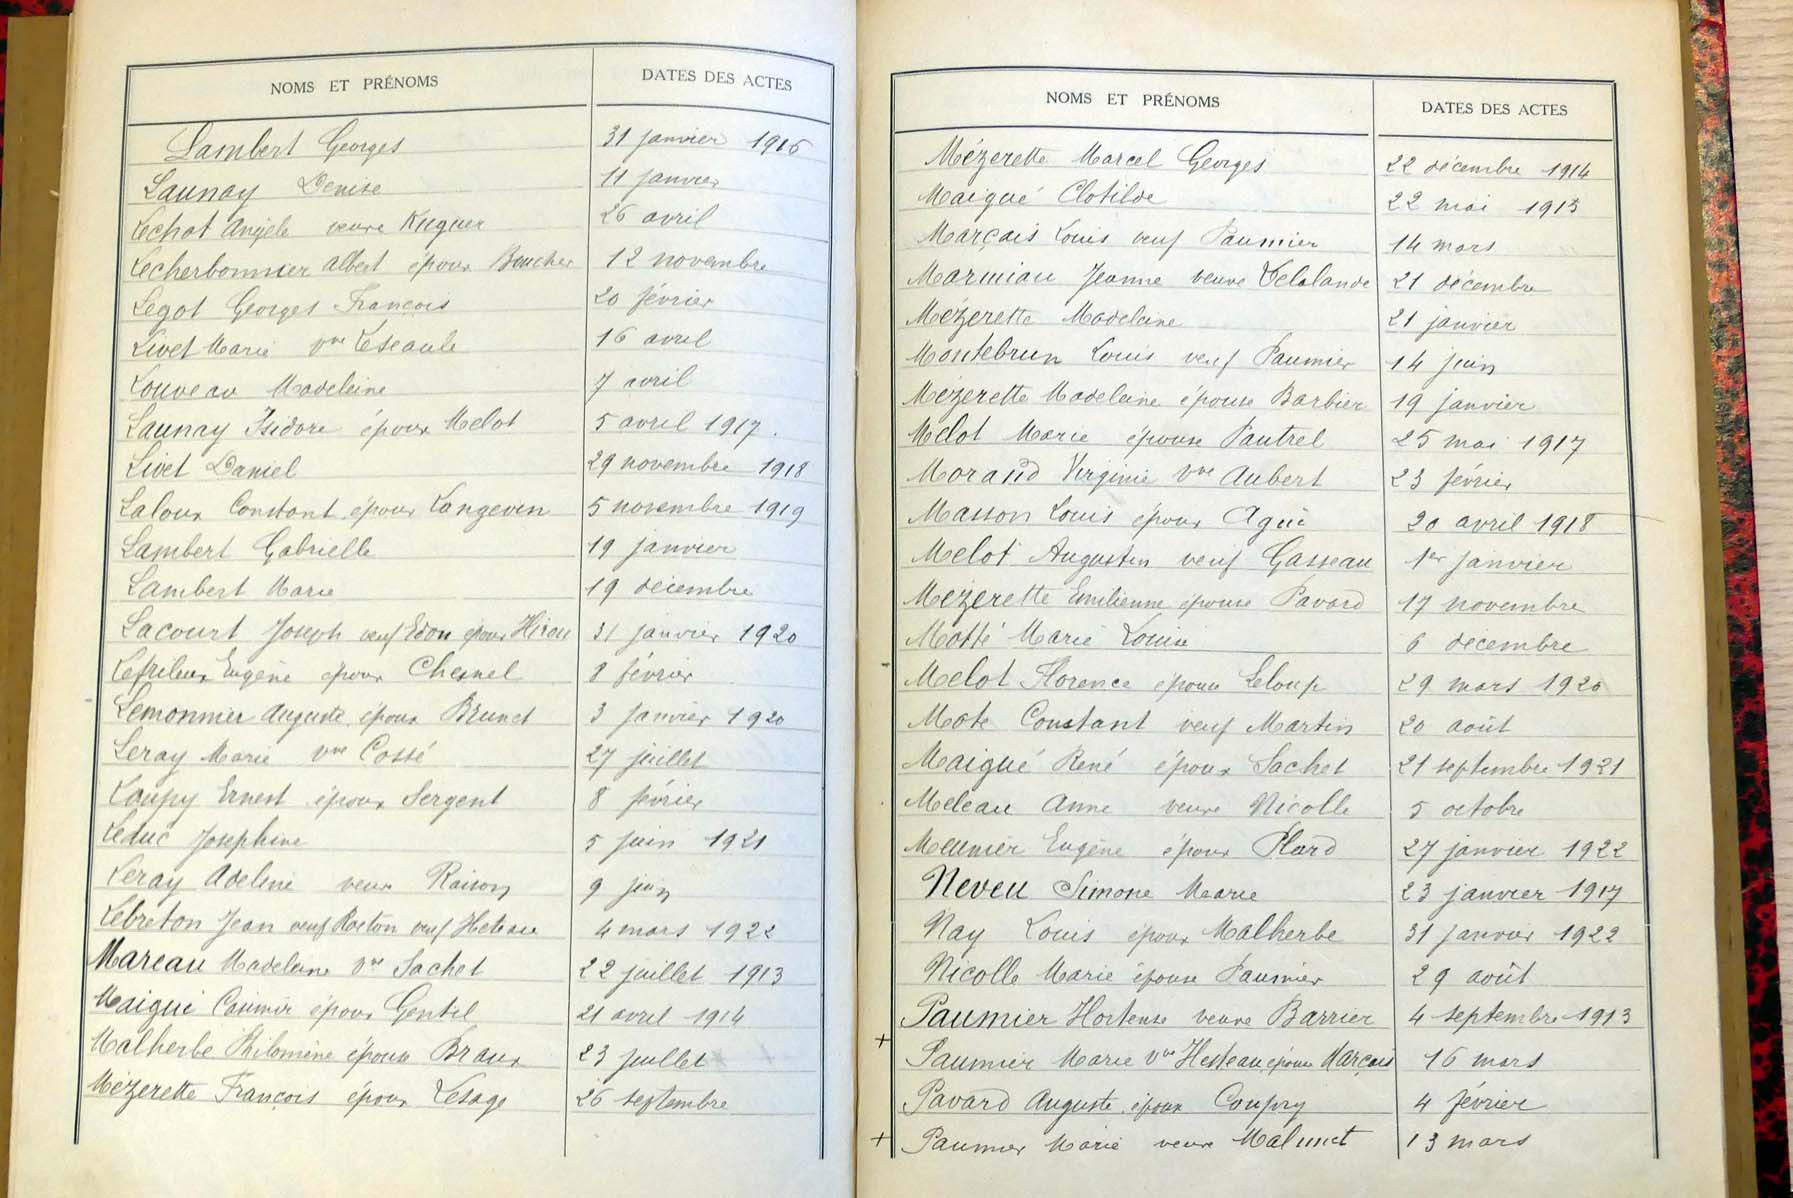 NOMS ET PRÉNOMS DATES DES ACTES
Lambert Georges 31 janvier 1916
Launay Denise 11 janvier
Lechat Angèle veuve 26 avril
Lecherbonnier Albert époux Boucher 12 novembre
Legot Georges François 20 février
Livet Marie Vve 16 avril
Louveau Madeleine 7 avril
Launay Isidore époux Melot 5 avril 1917.
Livet Daniel 29 novembre 1918
Laloux Constant époux Langevin 5 novembre 1919
Lambert Gabrielle 19 janvier
Lambert Marie 19 décembre
Lacourt Joseph veuf Edon époux 31 janvier 1920
Eugène époux Chesnel 8 février
Lemonnier Auguste époux Brunet 3 janvier 1920
Leray Marie Vve Cossé 27 juillet
Loupy Ernest époux Sergent 8 février
Leduc Joséphine 5 juin 1921
Leray Adeline veuve Raison 9 juin
Lebreton Jean veuf veuf 4 mars 1922
Mareau Madeleine Vve Sachet 22 juillet 1913
Maigué Casimir époux Gentil 21 avril 1914
Malherbe Philomène épouse Braux 23 juillet
Mézerette François époux Lesage 26 septembre
NOMS ET PRÉNOMS DATES DES ACTES
Mézerette Marcel Georges 22 décembre 1914
Maigué Clotilde 22 mai 1915
Marçais Louis veuf Paumier 14 mars
Marmiau Jeanne veuve Delalande 21 décembre
Mézerette Madeleine 21 janvier
Montebrun Louis veuf Paumier 14 juin
Mézerette Madeleine épouse Barbier 19 janvier
Melot Marie épouse Pautrel 25 mai 1917
Morand Virginie Vve Aubert 23 février
Masson Louis époux 20 avril 1918
Melot Augustin veuf Gasseau 1er janvier
Mézerette Emilienne épouse Pavard 17 novembre
Marie Louise 6 décembre
Melot Florence épouse Leloup 29 mars 1920
Constant veuf Martin 20 août
Maigué René époux Sachet 21 septembre 1921
Meleau Anne veuve Nicolle 5 octobre
Meunier Eugène époux Plard 27 janvier 1922
Neveu Simone Marie 23 janvier 1917
Nay Louis époux Malherbe 31 janvier 1922
Nicolle Marie épouse Paumier 29 août
Paumier Hortense veuve Barrier 4 septembre 1913
+ Paumier Marie Vve Hesteau épouse Marçais 16 mars
Pavard Auguste époux Coupry 4 février
+ Paumier Marie veuve 13 mars